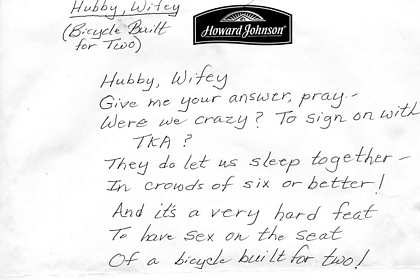 Hubby, Wifey
(Bicycle Built
for Two)
Howard Johnson®
Hubby, Wifey
Give me your answer, pray--
Were we crazy? To sign on with
TKA?
They do let us sleep together--
In crowds of six or better!
And it's a very hard feat
To have sex on the seat
Of a bicycle built for two!